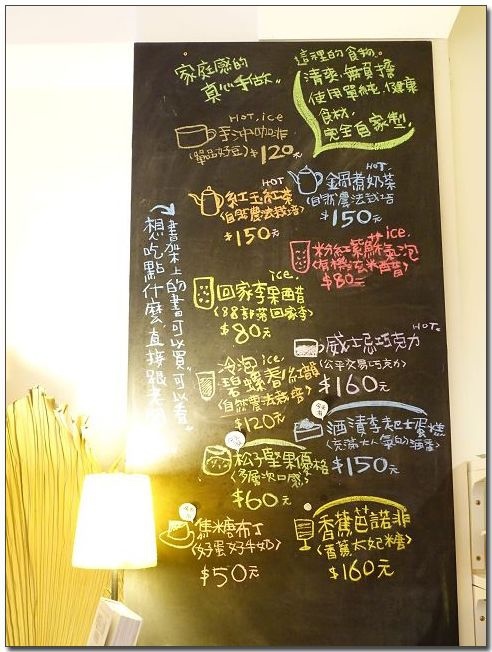 家庭感的
真心手做
這裡的食物。
清爽.無負擔
使用單純.健康
食材,
完全自家製!
HOT, ice
手沖咖啡
(單品好豆) $120
HOT
紅玉紅茶
(自然農法栽培)
$150元
HOT.
鍋煮奶茶
(自然農法栽培)
$150元
書架上的書可以買,可以看,
想吃點什麼,直接跟老
ice.
粉紅紫蘇氣泡
(有機玄米醋)
$80元
ice.
回家李果醋
(88部落回家李)
$80元
HOT.
威士忌巧克力
(公平交易巧克力)
$160元
冷泡 ice.
碧螺春紅
(自然農法
$120元
酒漬李起士蛋糕
(充滿大人氣的酒香)
$150元
松子堅果優格
(多層次口感)
$60元
焦糖布丁
(好蛋好牛奶)
$50元
香蕉芭諾非
(香蕉太妃糖)
$160元